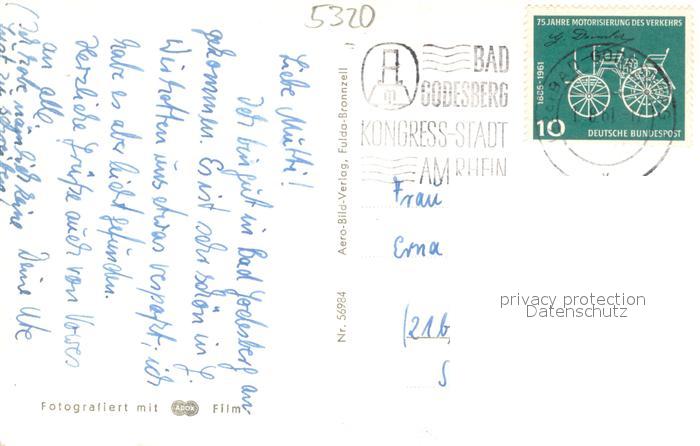 5320
75 JAHRE MOTORISIERUNG DES VERKEHRS
G. Daimler
1885-1961
10
DEUTSCHE BUNDESPOST
BAD
GODESBERG
KONGRESS-STADT
AM RHEIN
Liebe Mutti!
Ich bin gut in Bad Godesberg an
gekommen. Es ist sehr schön in G.
Wir hatten uns etwas verpaßt, ich
habe es aber leicht gefunden.
Herzliche Grüße auch von
an alle Deine Ute
(Ich habe nämlich keine
Lust zu schreiben)
Aero-Bild-Verlag, Fulda-Bronnzell
Nr. 56984
Frau
Erna
(21b
S
privacy protection
Datenschutz
Fotografiert mit Adox Film